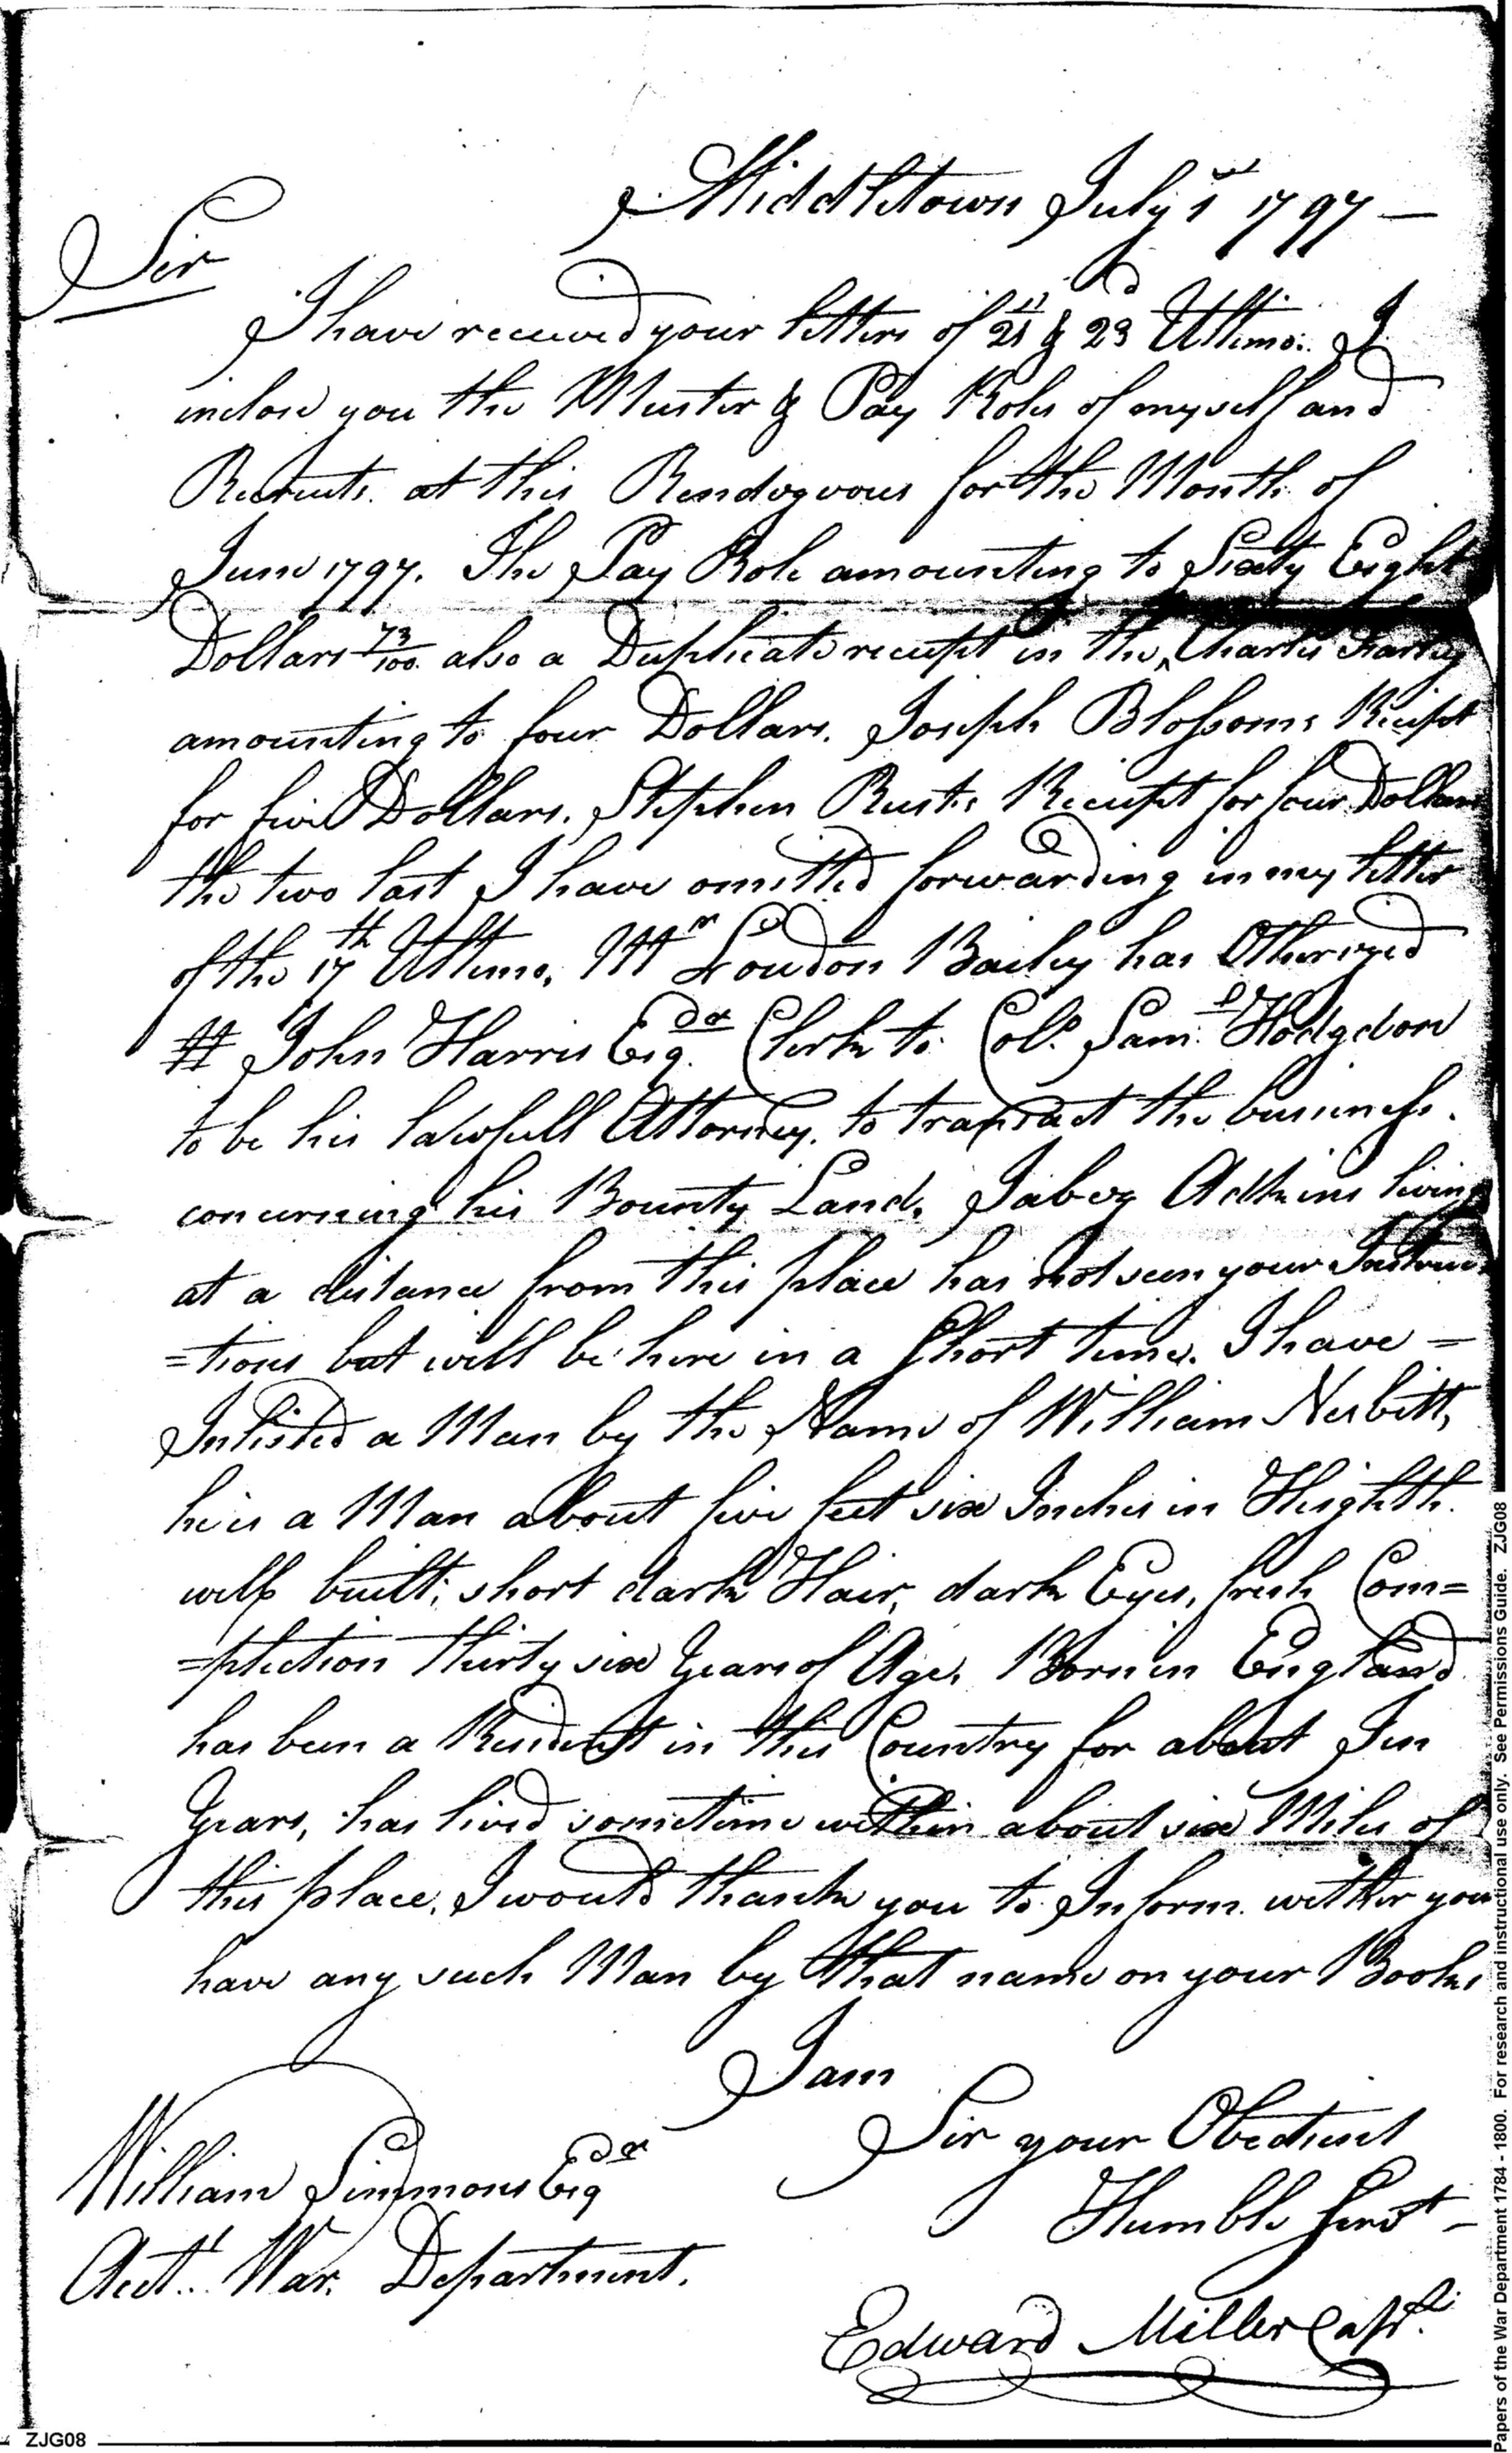 Middletown July 1st 1797 —
Sir
I have received your letters of 21st & 23d Ultimo. I
inclose you the Muster & Pay Roles of myself and
Recruits at this Rendozvous for the Month of
June 1797. The Pay Role amounting to Sixty Eight
Dollars 73/100 also a Duplicate receipt in the Charles
amounting to four Dollars. Joseph Blossoms Receipt
for five Dollars. Stephen Rusts Receipt for four Dollars
the two last I have omitted forwarding in my letter
of the 17th Ultimo. Mr Loudon Bailey has Otherized
John Harris Esqr Clerk to Col. Saml Hodgdon
to be his lawfull Attorney, to transact the business
concerning his Bounty Land. Jabez Adkins living
at a distance from this place has not seen your Instruc
=tions but will be here in a Short time. I have =
Inlisted a Man by the Name of William Nesbitt,
he is a Man about five feet six Inches in Heighth.
well built, short dark Hair, dark Eyes, fresh Com=
=plection thirty six Years of Age. Born in England
has been a Resident in this Country for about Ten
Years, has lived sometime within about six Miles of
this place, I would thank you to Inform wether you
have any such Man by that name on your Books
I am
Sir your Obedient
Humble Servt —
William Simmons Esqr
Acct. War Department.
Edward Miller Capt.
ZJG08
Papers of the War Department 1784 - 1800. For research and instructional use only. See Permissions Guide. ZJG08